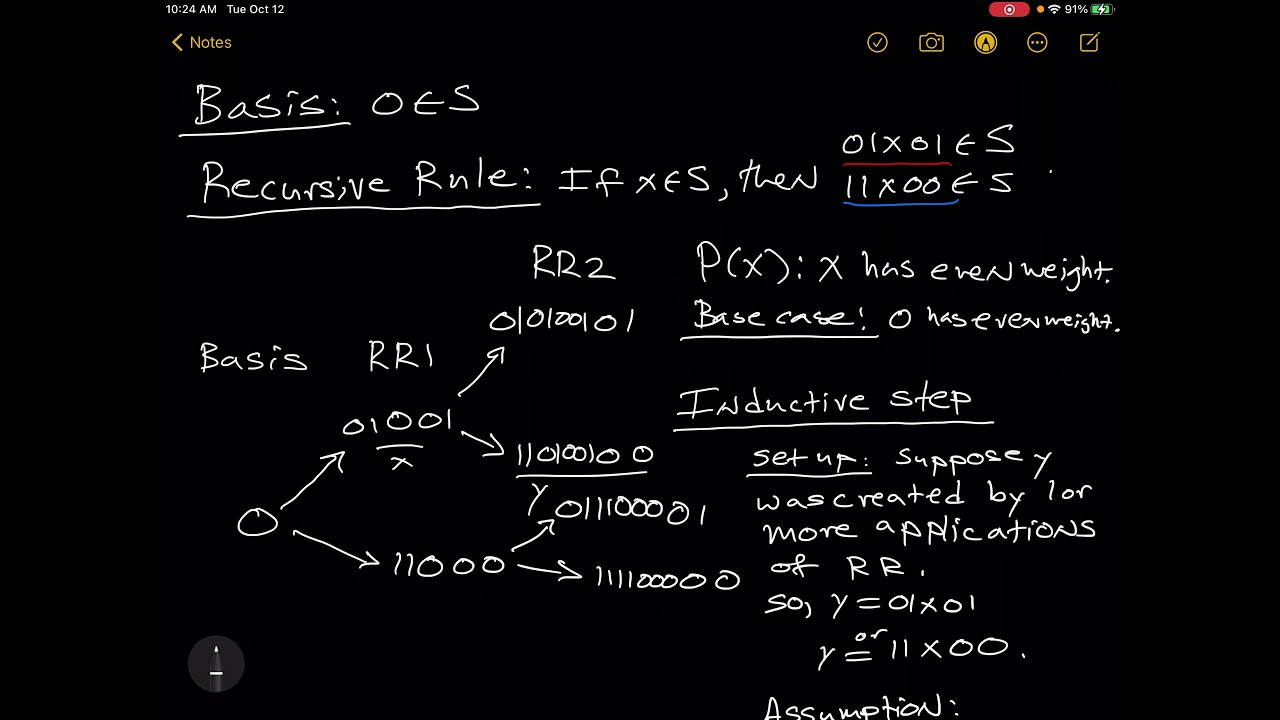 10:24 AM Tue Oct 12
91%
Notes
Basis: 0∈S
Recursive Rule: If x∈S, then 01x01∈S
11x00∈S
RR2
P(x): x has even weight.
010100101
Base case: 0 has even weight.
Basis RR1
01001
x
Inductive step
110100100
y
set up: suppose y
was created by 1 or
011100001
more applications
0
11000
111100000
of RR.
so, y=01x01
or
y=11x00.
Assumption: